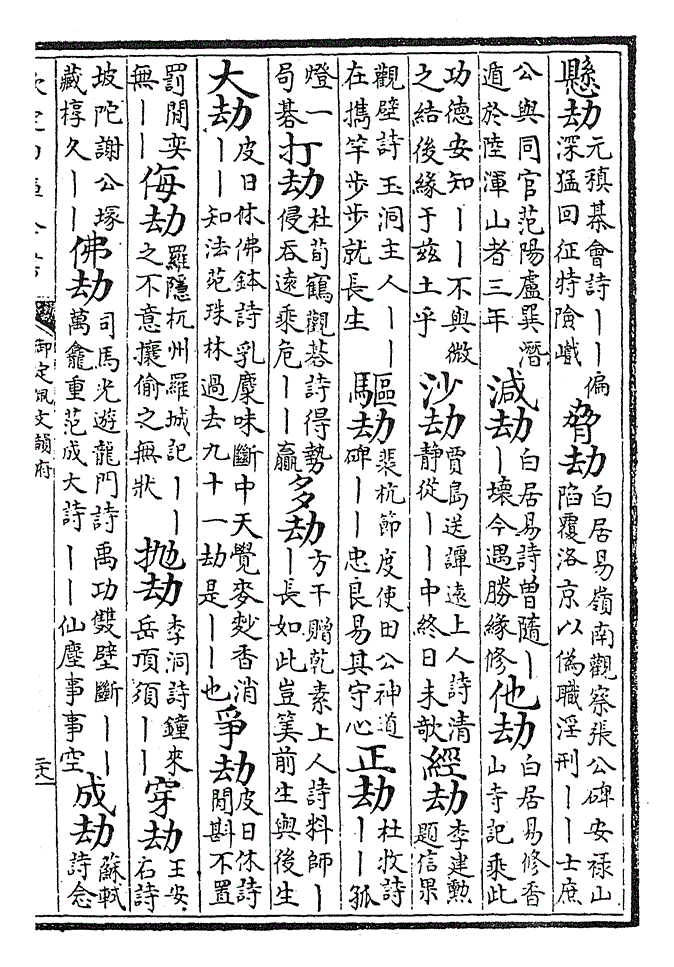 懸劫元稹棊會詩丨丨偏深猛回征特險巇脅劫白居易嶺南觀察張公碑安禄山陷覆洛京以偽職淫刑丨丨士庶
公與同官范陽盧巽潛遁於陸渾山者三年減劫白居易詩曽隨丨丨壞今遇勝緣修他劫白居易修香山寺記乘此
功德安知丨丨不與微之結後緣于兹土乎沙劫賈島送譚遠上人詩清静從丨丨中終日未欹經劫李建勲題信果
觀壁詩玉洞主人丨丨在携竿步步就長生驅劫裴杭節度使田公神道碑丨丨忠良易其守心正劫杜牧詩丨丨孤
燈一局棊打劫杜荀鶴觀碁詩得勢侵吞遠乘危丨丨贏多劫方干贈乾素上人詩料師丨丨長如此豈筭前生與後生
大劫皮日休佛鉢詩乳麋味斷中天覺麥麨香消丨丨知法苑珠林過去九十一劫是丨丨也爭劫皮日休詩閒斟不置
罰閒奕無丨丨侮劫羅隠杭州羅城記丨丨之不意攘偷之無狀抛劫李洞詩鐘來岳頂須丨丨穿劫王安石詩
坡陀謝公塚藏椁久丨丨佛劫司馬光遊龍門詩禹功雙壁斷丨丨萬龕重范成大詩丨丨仙塵事事空成劫蘇軾詩念
御定佩文韻府